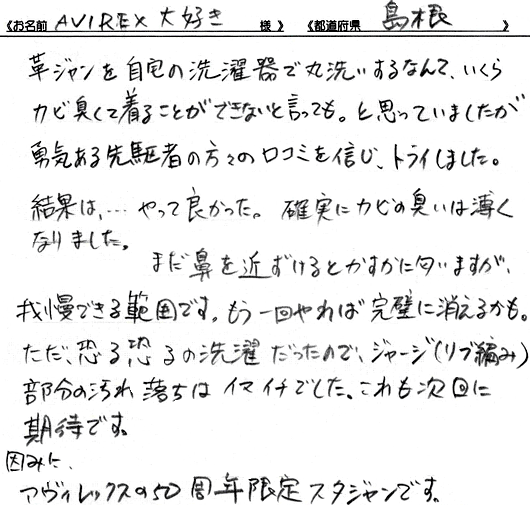 《お名前 AVIREX 大好き 様》 《都道府県 島根 》
革ジャンを自宅の洗濯器で丸洗いするなんて、いくら
カビ臭くて着ることができないと言っても。と思っていましたが
勇気ある先駆者の方々の口コミを信じ、トライしました。
結果は、… やって良かった。 確実にカビの臭いは薄く
なりました。
まだ鼻を近ずけるとかすかに匂いますが、
我慢できる範囲です。もう一回やれば完璧に消えるかも。
ただ、恐る恐るの洗濯だったので、ジャージ(リブ編み)
部分の汚れ落ちはイマイチでした。これも次回に
期待です。
因みに、
アヴィレックスの50周年限定スタジャンです。